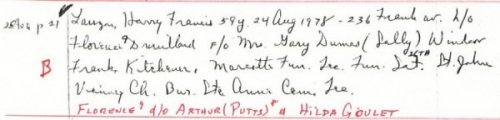 Lauzon, Harry Francis 59y. 24 Aug 1978 - 236 Frank av. h/o
Florence Drouillard f/o Mrs. Gary Dumas (Sally) Windsor
B Frank, Kitchener, Marcotte Fun. Tec. Fun. Sat. 26TH St. John
Vianney Ch. Bur. Ste Anne Cem. Tec.
FLORENCE d/o ARTHUR (PUTTS) & HILDA GOULET